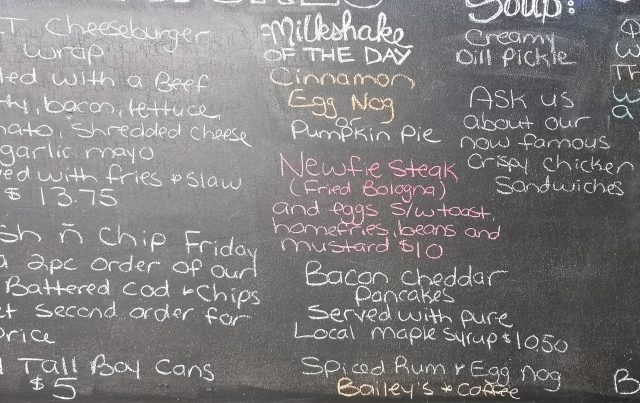 T Cheeseburger
wrap
led with a Beef
ty, bacon, lettuce,
nato, Shredded cheese
garlic mayo
ved with fries & slaw
$ 13.75
sh ñ Chip Friday
a 2pc order of our
Battered Cod & Chips
et second order for
price
Tall Boy Cans
$5
Milkshake
OF THE DAY
Cinnamon
Egg Nog
or
Pumpkin Pie
Newfie Steak
(Fried Bologna)
and eggs S/w toast,
homefries, beans and
mustard $10
Bacon cheddar
Pancakes
Served with pure
Local maple syrup $10.50
Spiced Rum & Egg nog
Bailey's & Coffee
Soup:
Creamy
Dill Pickle
Ask us
about our
now famous
Crispy chicken
Sandwiches